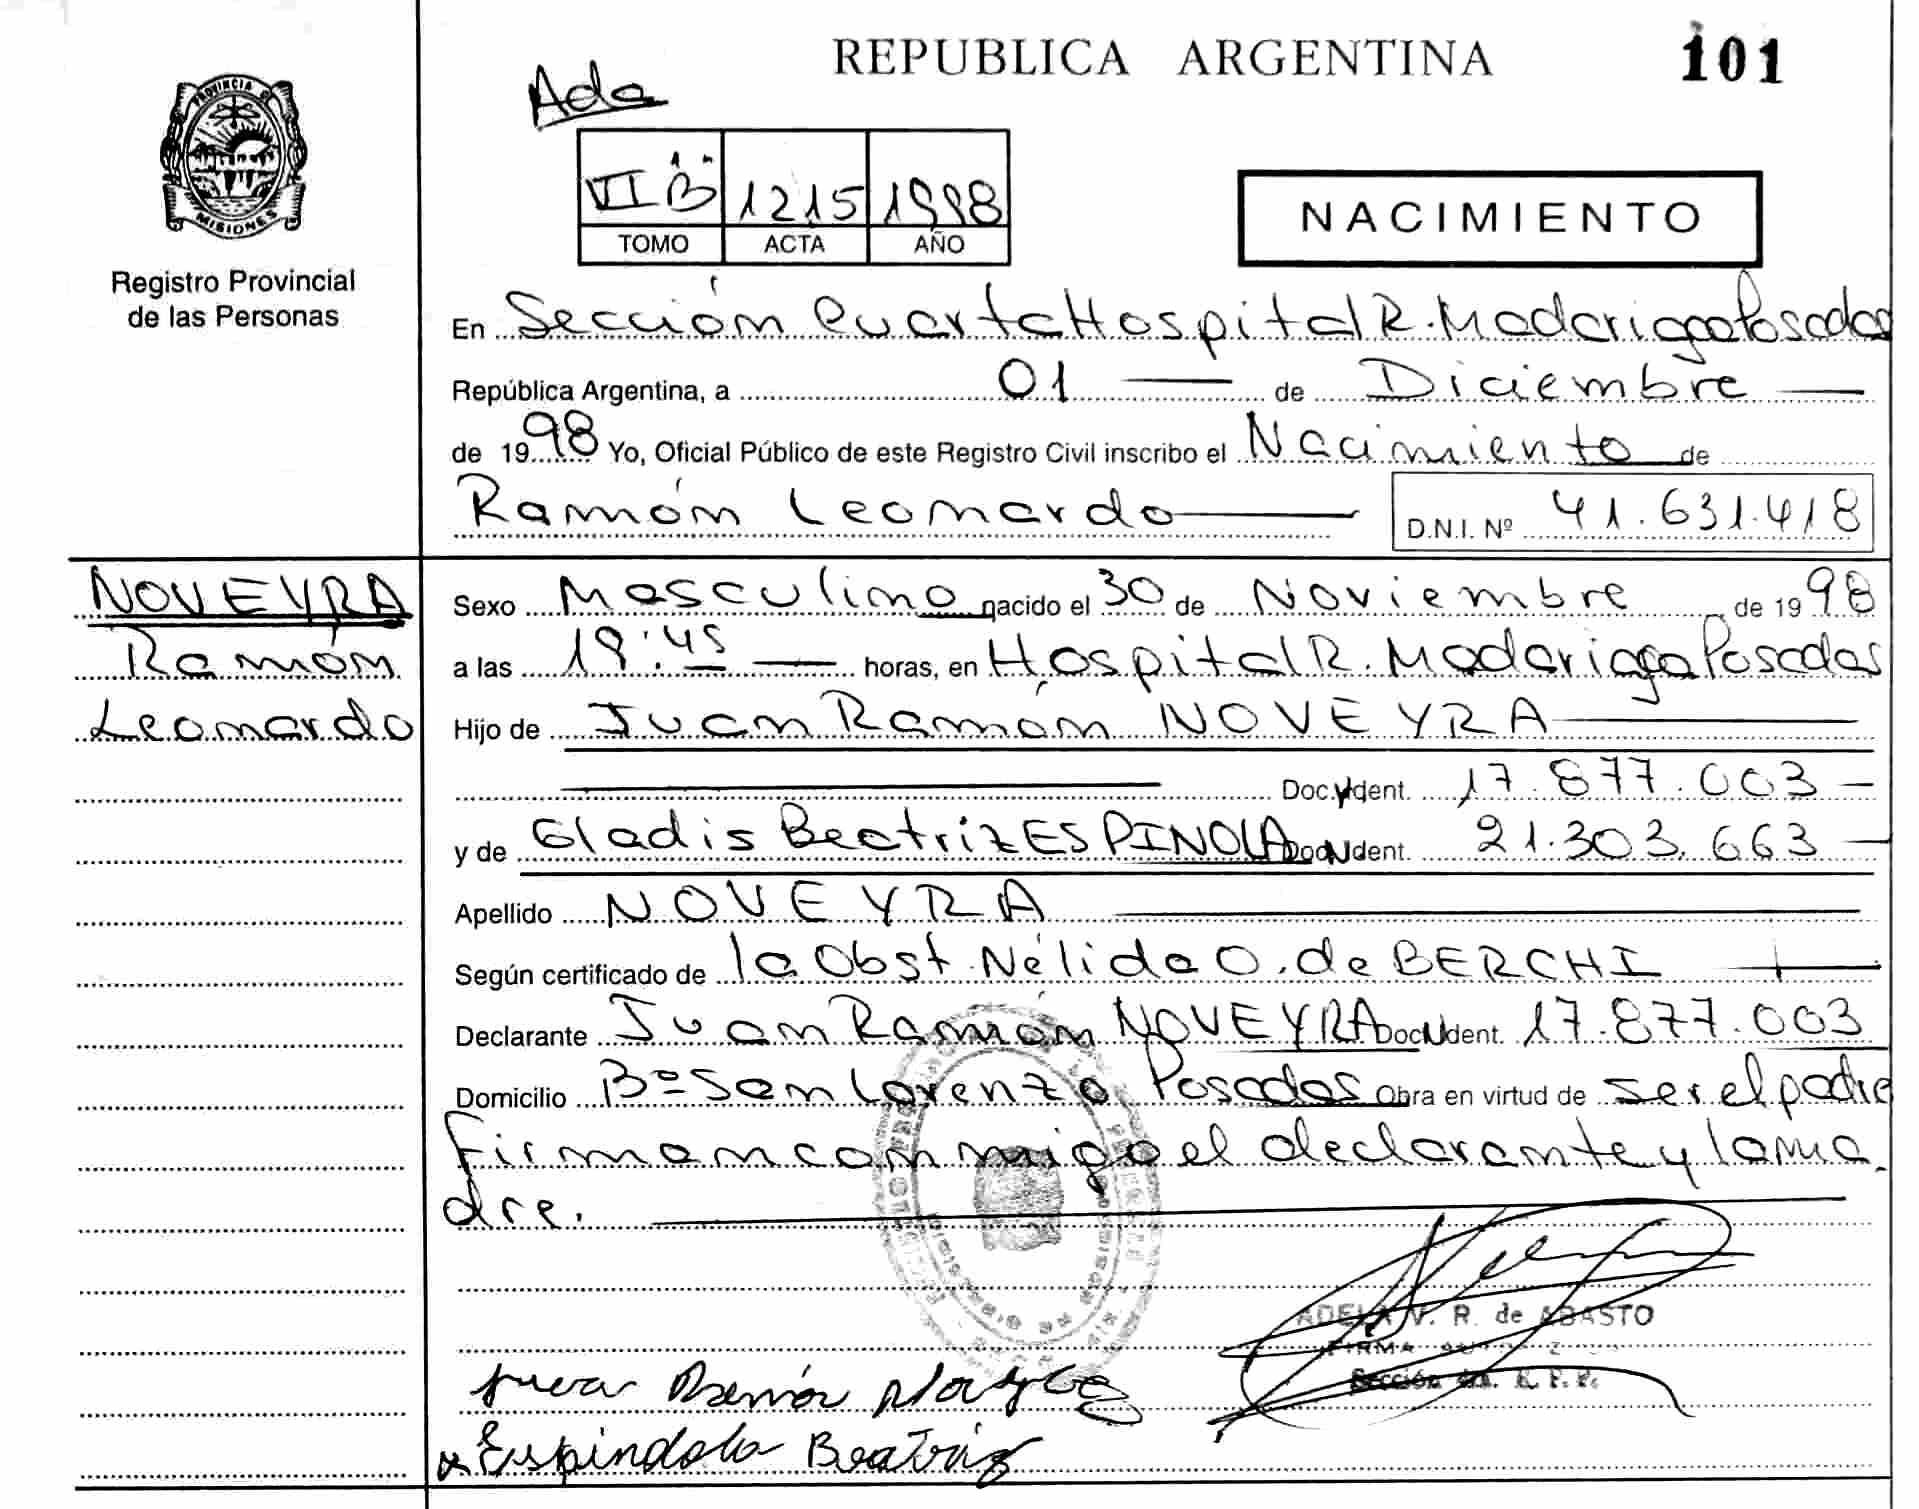 REPUBLICA ARGENTINA
101
Ada
PROVINCIA D
MISIONES
Registro Provincial
de las Personas
VI "B" 1215 1998
TOMO ACTA AÑO
NACIMIENTO
En Sección Cuarta Hospital R. Madariaga Posadas
República Argentina, a 01 de Diciembre
de 1998 Yo, Oficial Público de este Registro Civil inscribo el Nacimiento de
Ramón Leonardo D.N.I. Nº 41.631.418
NOVEYRA
Ramón
Leonardo
Sexo Masculino nacido el 30 de Noviembre de 1998
a las 19:45 horas, en Hospital R. Madariaga Posadas
Hijo de Juan Ramón NOVEYRA
Doc. Ident. 17.877.003
y de Gladis Beatriz ESPINOLA Doc. Ident. 21.303.663
Apellido NOVEYRA
Según certificado de la Obst. Nélida O. de BERCHI
Declarante Juan Ramón NOVEYRA Doc. Ident. 17.877.003
Domicilio Bº San Lorenzo Posadas Obra en virtud de ser el padre
Firman conmigo el declarante y la ma
dre.
ADELA V. R. de ABASTO
FIRMA
Sección 4a. R. P. P.
Juan Ramón
Espindola Beatriz